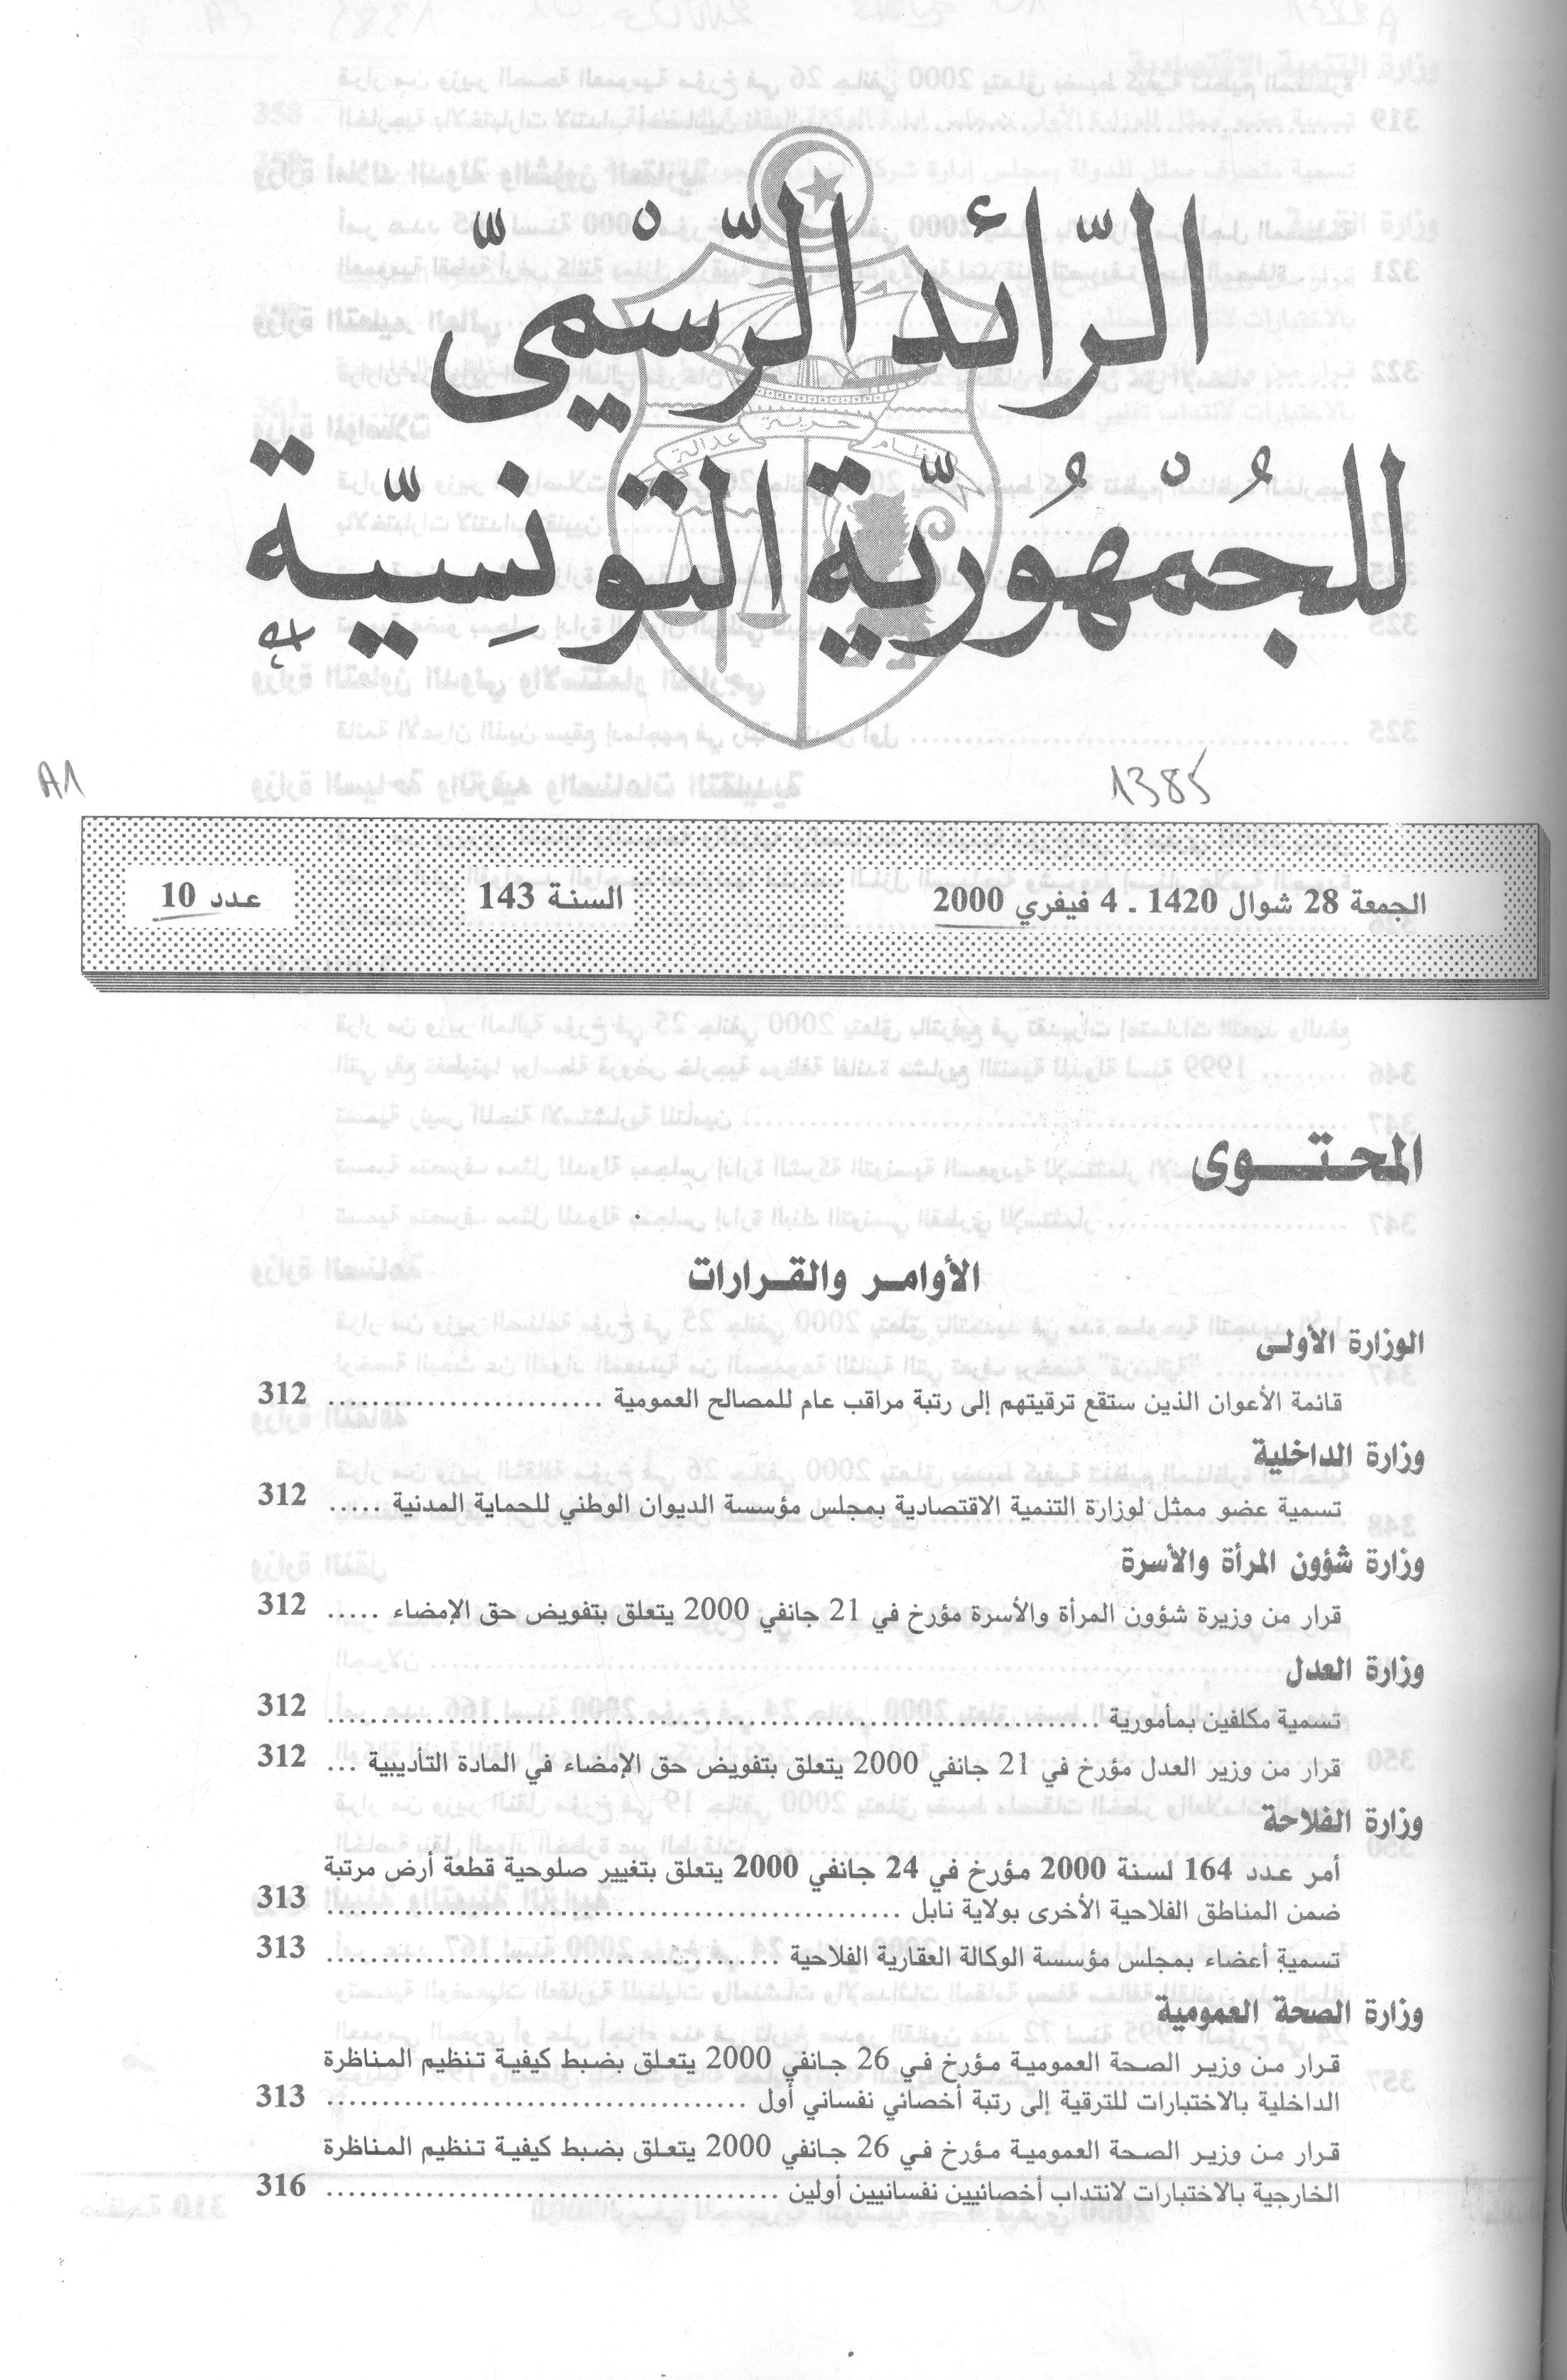 الرّائد الرّسْميّ
للجُمْهُوريّة التّونِسيّة
نظام حرية عدالة
A1
1385
الجمعة 28 شوال 1420 ـ 4 فيفري 2000
السنة 143
عدد 10
المحتوى
الأوامر والقرارات
الوزارة الأولى
قائمة الأعوان الذين ستقع ترقيتهم إلى رتبة مراقب عام للمصالح العمومية ......................... 312
وزارة الداخلية
تسمية عضو ممثل لوزارة التنمية الاقتصادية بمجلس مؤسسة الديوان الوطني للحماية المدنية ..... 312
وزارة شؤون المرأة والأسرة
قرار من وزيرة شؤون المرأة والأسرة مؤرخ في 21 جانفي 2000 يتعلق بتفويض حق الإمضاء ..... 312
وزارة العدل
تسمية مكلفين بمأمورية ...................................................................... 312
قرار من وزير العدل مؤرخ في 21 جانفي 2000 يتعلق بتفويض حق الإمضاء في المادة التأديبية ... 312
وزارة الفلاحة
أمر عدد 164 لسنة 2000 مؤرخ في 24 جانفي 2000 يتعلق بتغيير صلوحية قطعة أرض مرتبة
ضمن المناطق الفلاحية الأخرى بولاية نابل .................................................... 313
تسمية أعضاء بمجلس مؤسسة الوكالة العقارية الفلاحية ......................................... 313
وزارة الصحة العمومية
قرار من وزير الصحة العمومية مؤرخ في 26 جانفي 2000 يتعلق بضبط كيفية تنظيم المناظرة
الداخلية بالاختبارات للترقية إلى رتبة أخصائي نفساني أول ...................................... 313
قرار من وزير الصحة العمومية مؤرخ في 26 جانفي 2000 يتعلق بضبط كيفية تنظيم المناظرة
الخارجية بالاختبارات لانتداب أخصائيين نفسانيين أولين ......................................... 316